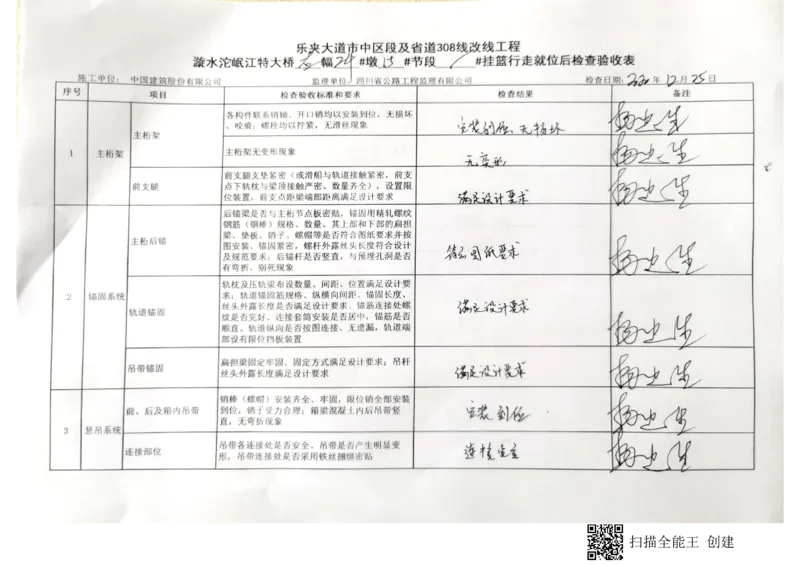 乐夹大道市中区段及省道308线改线工程
漩水沱岷江特大桥 右 幅 24 #墩 #节段 / #挂篮行走就位后检查验收表
施工单位: 中国建筑股份有限公司 监理单位: 四川省公路工程监理有限公司 检查日期: 年 12 月 25 日
序号 项目 检查验收标准和要求 检查结果 备注
1 主桁架
主桁架
各构件联系销轴、开口销均以安装到位,无损坏
、咬痕;螺丝均以拧紧,无滑丝现象
安装到位、无损坏
主桁架无变形现象
无变形
前支腿
前支腿支垫紧密(或滑船与轨道接触紧密、前支
点下轨枕与梁顶接触严密、数量齐全),设置限
位装置,前支点距梁端部距离满足设计要求
满足设计要求
2 锚固系统
主桁后锚
后锚梁是否与主桁节点板密贴,锚固用精轧螺纹
钢筋(钢棒)规格、数量、其上部和下部的扁担
梁、垫板、销子、螺帽等是否符合图纸要求并按
图安装、锚固紧密,螺杆外露丝头长度符合设计
及规范要求;后锚杆是否竖直,与预埋孔洞是否
有弯折、别死现象
符合图纸要求
轨道锚固
轨枕及压轨梁布设数量、间距、位置满足设计要
求;轨道锚固筋规格、纵横向间距、锚固长度、
丝头外露长度是否满足设计要求。锚筋连接处螺
纹是否完好、连接套筒安装是否居中,锚筋是否
顺直。轨道纵向是否按图连接、无遗漏,轨道端
部设有限位挡板装置
满足设计要求
吊带锚固
扁担梁固定牢固、固定方式满足设计要求;吊杆
丝头外露长度满足设计要求
满足设计要求
3 悬吊系统
前、后及箱内吊带
销棒(螺帽)安装齐全、牢固,限位销全部安装
到位,销子受力合理;箱梁混凝土内后吊带竖
直,无弯折现象
安装到位
连接部位
吊带各连接处是否安全、吊带是否产生明显变
形,吊带连接处是否采用铁丝捆绑密贴
连接安全
扫描全能王 创建